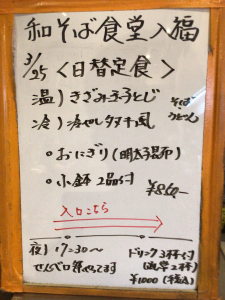 和そば食堂入福
3/25 <日替定食>
温)きざみ玉子とじ
そば
うどん
冷)冷やしタヌキ風
・おにぎり(明太子昆布)
・小鉢2品付
¥850-
入口こちら
夜)17:30〜
せんべロ祭やってます
ドリンク3杯付
¥1000(税込)